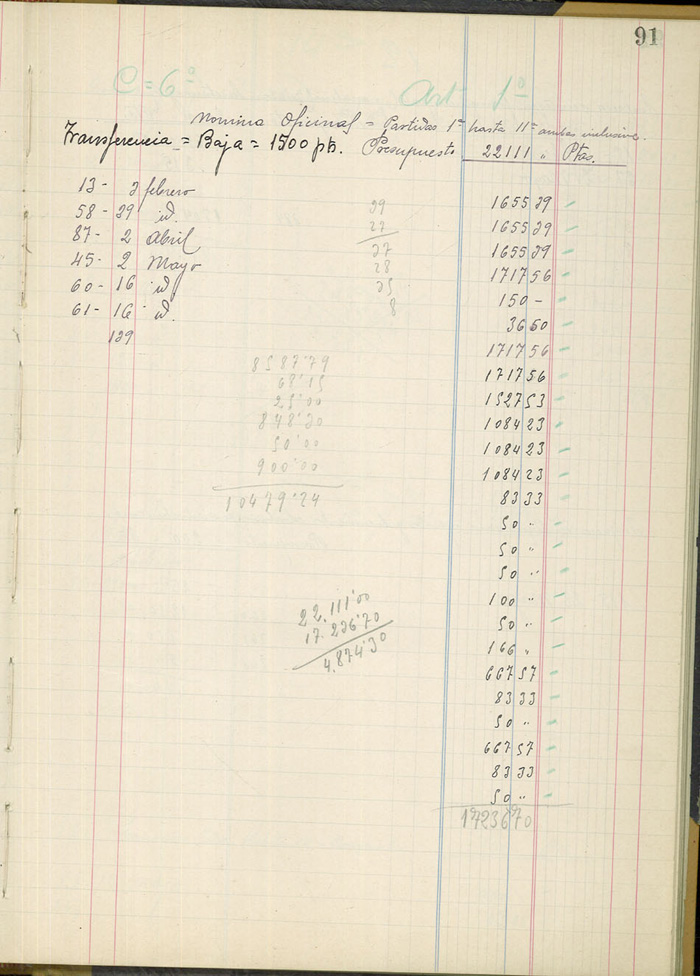 91
C=6º Art 1º
Nomina Oficinal = Partidas 1ª hasta 11ª ambas inclusive.
Transferencia = Baja = 1500 pts. Presupuesto 22111 " Ptas.
13- 2 febrero 1655 29
58- 29 id. 29 1655 29
87- 2 Abril 27 1655 29
45- 2 Mayo 27 1717 56
60- 16 id 28 150 -
61- 16 id. 25 36 50
129 8 1717 56
8587'79 1717 56
68'15 1527 53
25'00 1084 23
848'30 1084 23
50'00 1084 23
900'00 83 33
10479'24 50 "
50 "
50 "
22.111'00 100 "
17.236'70 50 "
4.874'30 166 "
667 57
83 33
50 "
667 57
83 33
50 "
17236 70